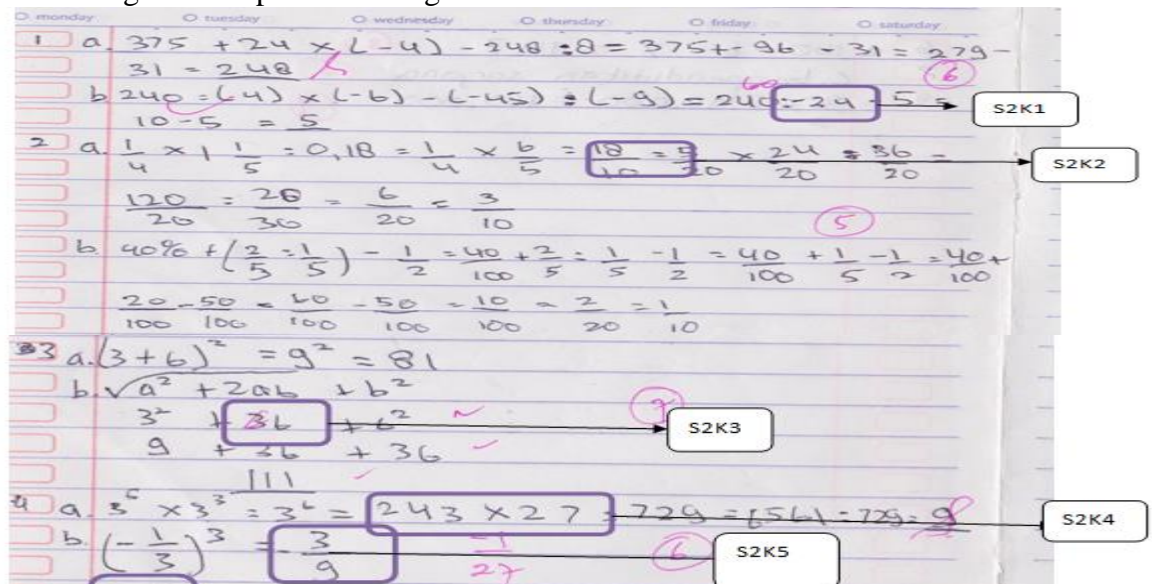 monday tuesday wednesday thursday friday saturday
1 a. 375 + 24 × (-4) - 248 : 8 = 375 + -96 - 31 = 279 -
31 = 248 6
b. 240 : (4) × (-6) - (-45) : (-9) = 240 : -24 - 5 = 60 S2K1
10 - 5 = 5
2 a. 1/4 × 1 1/5 : 0,18 = 1/4 × 6/5 = 18/10 = 5/20 × 24/20 : 36/20 = S2K2
120/20 : 26/36 = 6/20 = 3/10
5
b. 40% + (2/5 : 1/5) - 1/2 = 40/100 + 2/5 : 1/5 - 1/2 = 40/100 + 1/5 - 1/2 = 40/100 +
20/100 - 50/100 = 60/100 - 50/100 = 10/100 = 2/20 = 1/10
3 a. (3 + 6)² = 9² = 81
b. √a² + 2ab + b²
3² + 36 + 6² S2K3
9 + 36 + 36
111
4 a. 3⁵ × 3³ : 3⁶ = 243 × 27 : 729 = 6561 : 729 = 9 S2K4
b. (-1/3)³ = -3/9 -1/27 6 S2K5